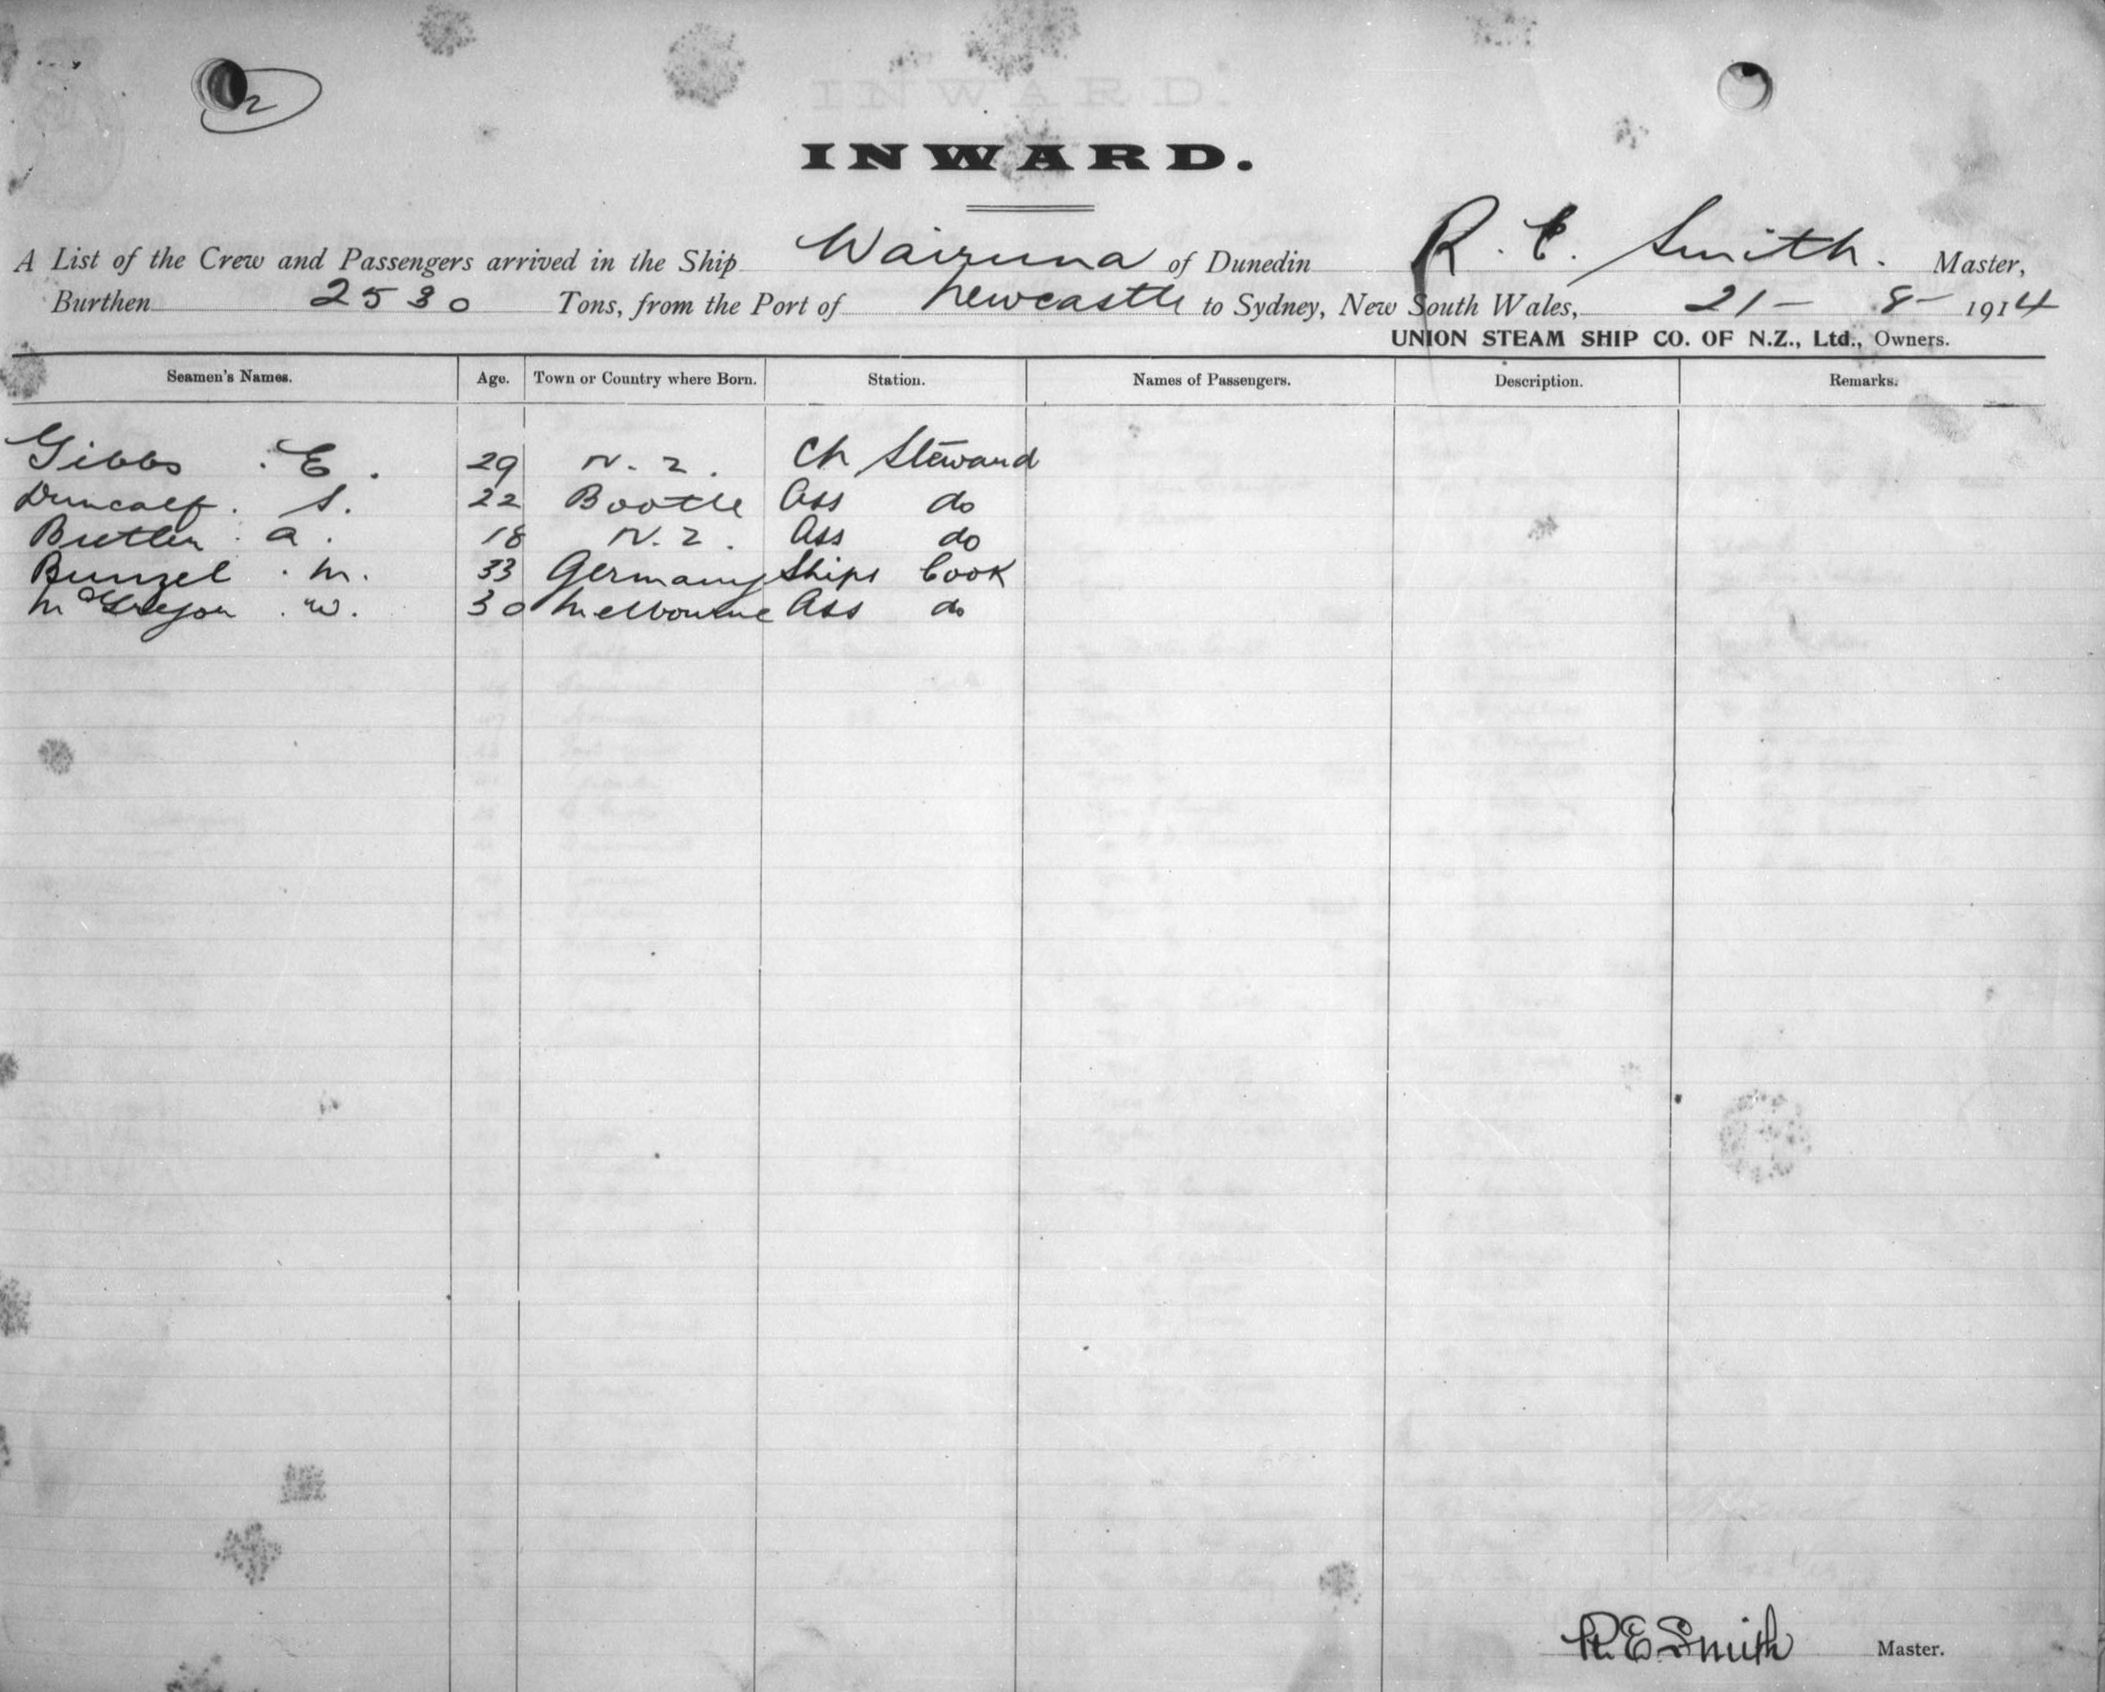 2
INWARD.
A List of the Crew and Passengers arrived in the Ship Wairuna of Dunedin R. E. Smith. Master,
Burthen 2530 Tons, from the Port of Newcastle to Sydney, New South Wales, 21- 8- 1914
UNION STEAM SHIP CO. OF N.Z., Ltd., Owners.
Seamen's Names. Age. Town or Country where Born. Station. Names of Passengers. Description. Remarks.
Gibbs . E . 29 N.Z. Ch Steward
Duncalf . S. 22 Bootle Ass do
Butler . A . 18 N.Z. Ass do
Bunzel . M. 33 Germany Ships Cook
McGregor . W. 30 Melbourne Ass do
R E Smith Master.